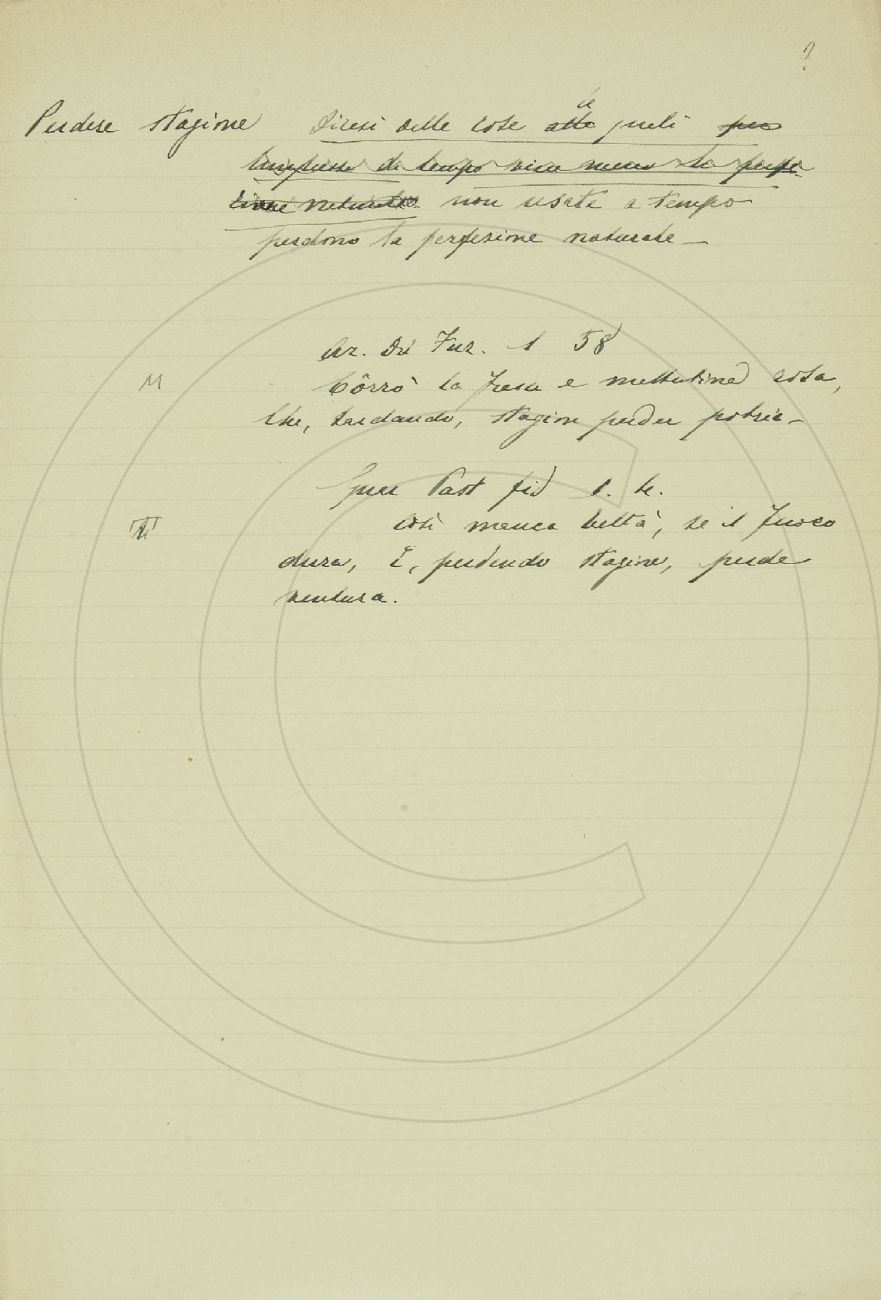 ?
Perdere stagione Dicesi delle cose alle le quali per
lunghezza di tempo vien meno la perfe
zione naturale non usate a tempo
perdono la perfezione naturale —
Ar. Orl Fur. 1 58
M Côrrò la fresca e mattutina rosa,
Che, tardando, stagion perder potria —
Guar Past fid 1. 1.
T Così manca beltà, se il fuoco
dura, E, perdendo stagione, perde
ventura.